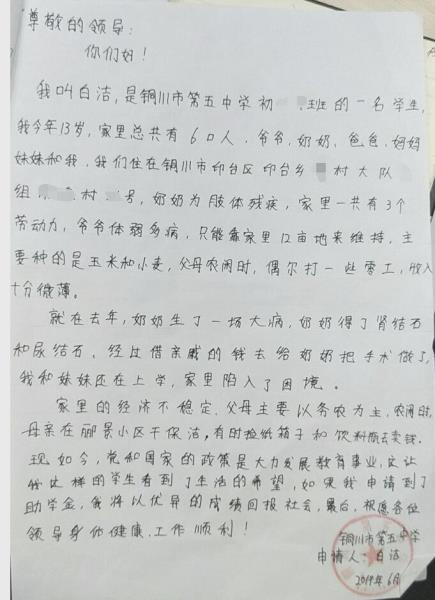 尊敬的领导:
你们好!
我叫白洁,是铜川市第五中学初 班的一名学生,
我今年13岁,家里总共有6口人,爷爷、奶奶、爸爸、妈妈
妹妹和我,我们住在铜川市印台区印台乡 村大队
组 村 号,奶奶为肢体残疾,家里一共有3个
劳动力,爷爷体弱多病,只能靠家里12亩地来维持,主
要种的是玉米和小麦,父母农闲时,偶尔打一些零工,收入
十分微薄。
就在去年,奶奶生了一场大病,奶奶得了肾结石
和尿结石,经过借亲戚的钱去给奶奶把手术做了,
我和妹妹还在上学,家里陷入了困境。
家里的经济不稳定,父母主要以务农为主,农闲时,
母亲在郦景小区干保洁,有时捡纸箱子和饮料瓶去卖钱.
现如今,党和国家的政策是大力发展教育事业,这让
我这样的学生看到了生活的希望,如果我申请到了
助学金,我将以优异的成绩回报社会,最后,祝愿各位
领导身体健康,工作顺利!
铜川市第五中学
申请人:白洁
2019年6月